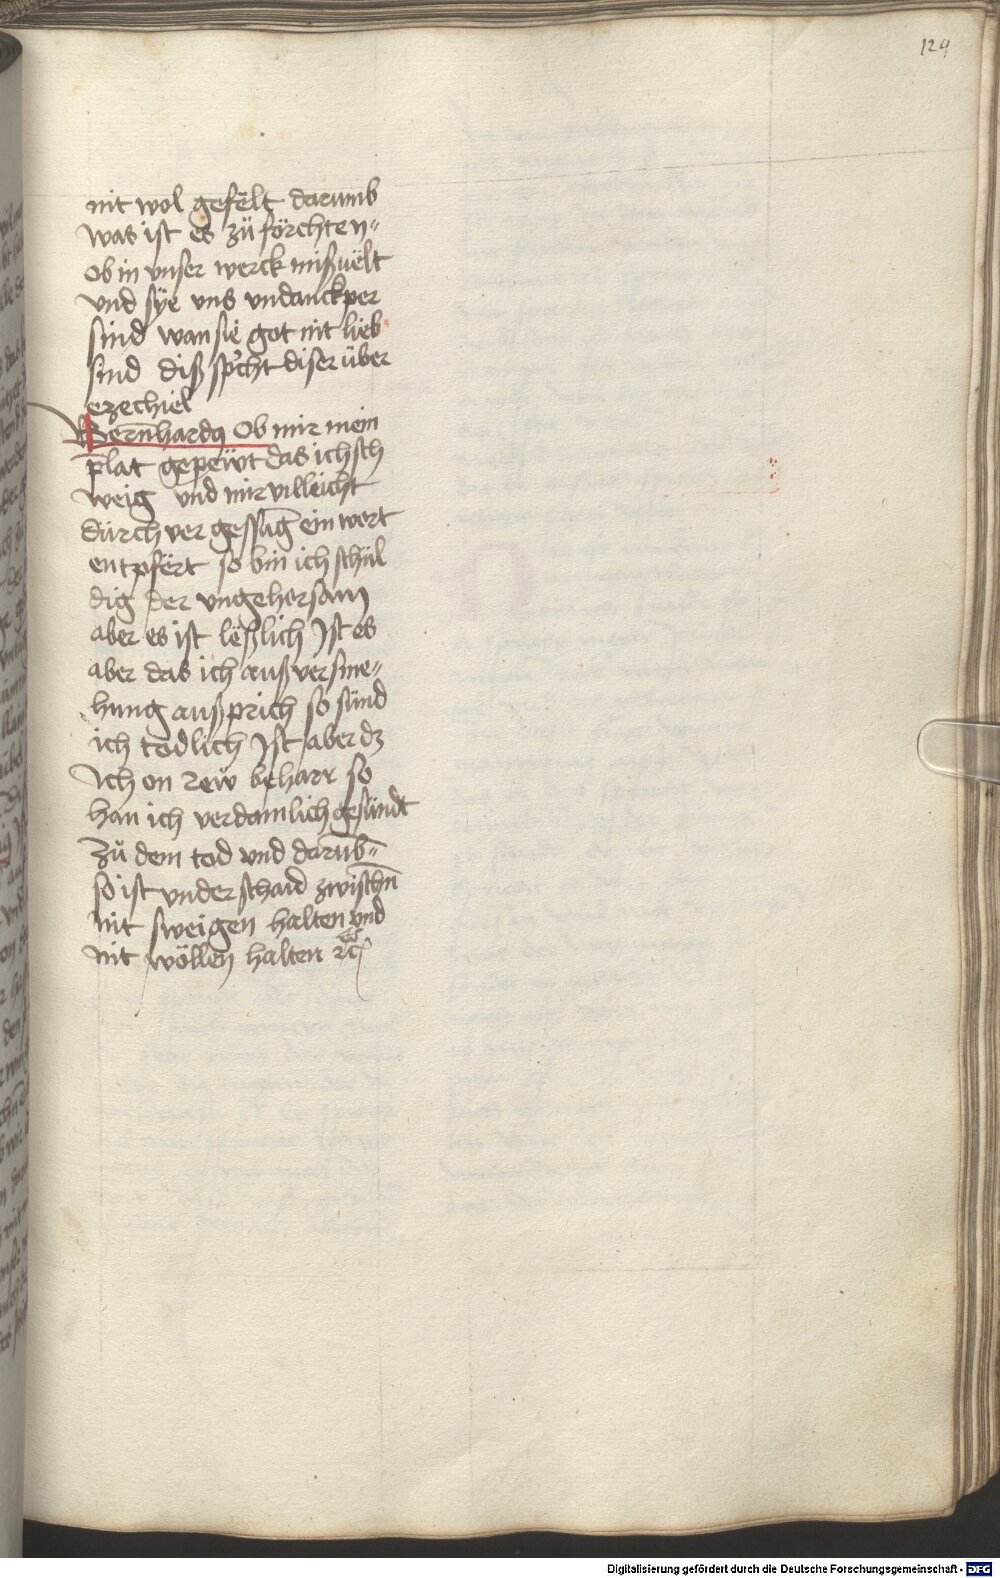 124
nit wol gefelt darumb
was ist es zü förchten
ob in vnser werck mißuelt
vnd sÿe vns vndanckper
sind wan sie got nit lieb
sind diß spͥcht diser über
ezechiel
Bern̄hardꝰ Ob mir mein
plat gepeẅt das ich sch
weig vnd mir villeicht
durch ver geſſūg ein wort
entpfert so bin ich schul
dig der vngehorsam
aber es ist leßlich Ist es
aber das ich auß versme-
hung außprich so sünd
ich todlich Ist aber dz
Ich on reẅ beharr so
han ich verdamlich gesündt
Zü dem tod vnd darūb
so ist vnderschaid zwischn̄
nit sweigen halten vnd
nit wöllen halten ꝛc
Digitalisierung gefördert durch die Deutsche Forschungsgemeinschaft - DFG